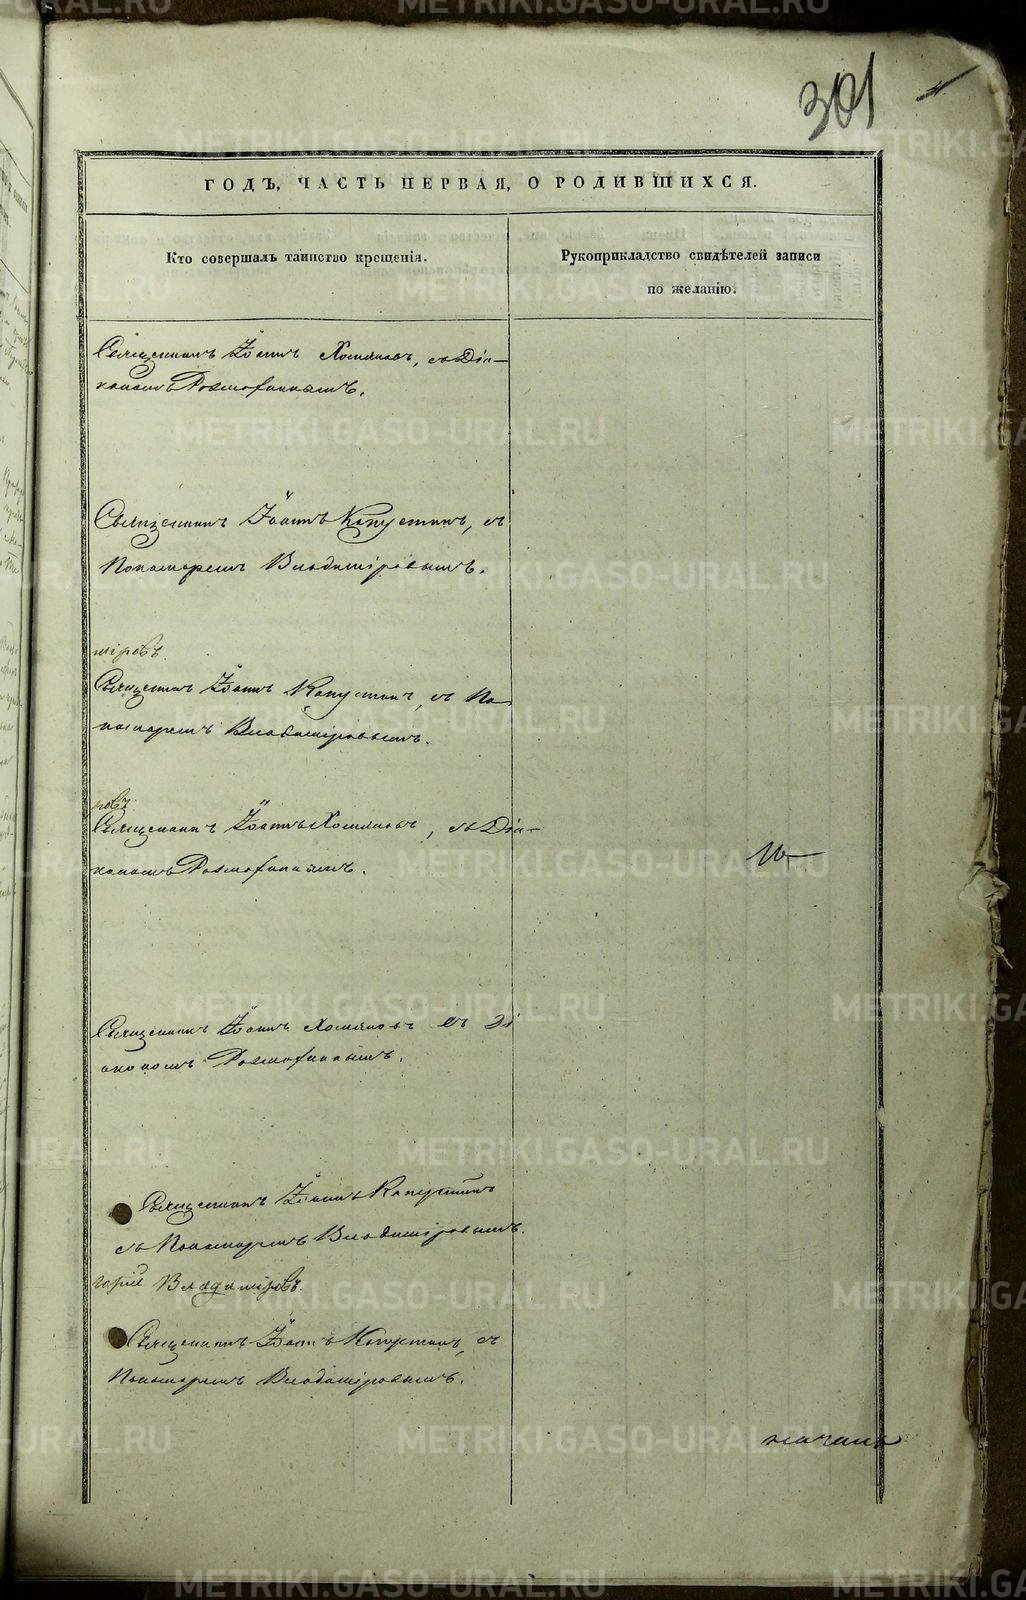 301
ГОДЪ, ЧАСТЬ ПЕРВАЯ, О РОДИВШИХСЯ.
Кто совершалъ таинство крещенія.
Рукоприкладство свидѣтелей записи
по желанію.
Священникъ Іоаннъ Хомяковъ, съ Діа-
кономъ
Священникъ Іоаннъ Капустинъ, съ
Пономаремъ Владиміровымъ.
міровъ
Священникъ Іоаннъ Капустинъ, съ По-
номаремъ Владиміровымъ.
ровъ
Священникъ Іоаннъ Хомяковъ, съ Діа-
кономъ
Священникъ Іоаннъ Хомяковъ съ Ді
акономъ
Священникъ Іоаннъ Капустинъ
съ Пономаремъ Владиміровымъ.
горій Владиміровъ.
Священникъ Іоаннъ Капустинъ, съ
Пономаремъ Владиміровымъ.
METRIKI.GASO-URAL.RU